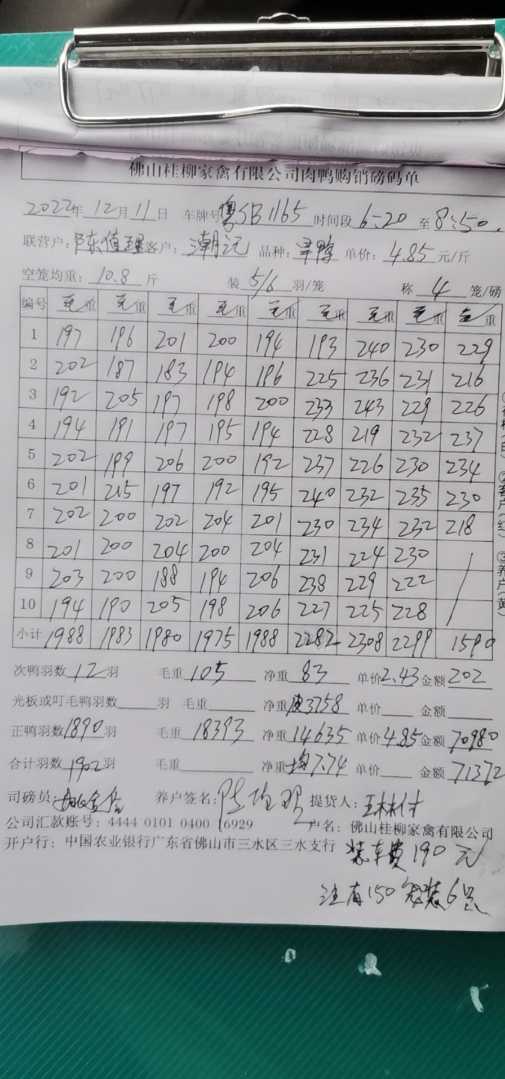 佛山桂柳家禽有限公司肉鸭购销磅码单
2022年12月11日 车牌号粤SB1165 时间段6:20至8:50
联营户: 客户:潮记 品种: 单价:4.85元/斤
空笼均重:10.8斤 装5/6羽/笼 称4笼/磅
编号 毛重 毛重 毛重 毛重 毛重 毛重 毛重 毛重 毛重
1 197 196 201 200 194 193 240 230 229
2 202 187 183 194 196 225 236 231 216
3 192 205 197 198 200 233 243 229 226
4 194 191 197 195 194 228 219 232 237
5 202 199 206 200 192 237 226 230 234
6 201 215 197 192 195 240 232 235 230
7 202 200 202 204 201 230 234 232 218
8 201 200 204 200 204 231 224 230
9 203 200 188 194 206 238 229 222
10 194 190 205 198 206 227 225 228
小计 1988 1983 1980 1975 1988 2282 2308 2299 1590
次鸭羽数12羽 毛重105 净重83 单价2.43金额202
光板或叮毛鸭羽数 羽 毛重 净重3758 单价 金额
正鸭羽数1890羽 毛重18393 净重14635 单价4.85金额70980
合计羽数1902羽 毛重 净重均7.74 单价 金额71372
司磅员: 养户签名: 提货人:
公司汇款账号: 4444 0101 0400 16929 户名: 佛山桂柳家禽有限公司
开户行: 中国农业银行广东省佛山市三水区三水支行 装车费190元
注有150 装6只